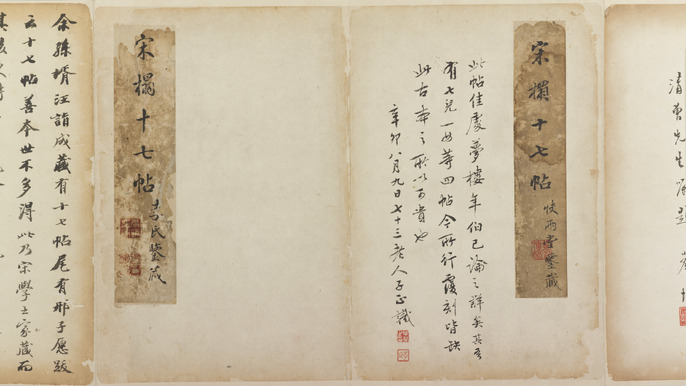 清曹先生屬題
宋搨十七帖
快雨堂鑒藏
此帖佳處夢樓年伯已論之詳矣其
有七兒一女等四帖今所行覆刻皆缺
此古本之所以可貴也
辛卯八月九日七十三老人子正識
宋搨十七帖
氏鑒藏
余孫壻汪詣成藏有十七帖尾有邢子愿跋
云十七帖善本世不多得此乃宋學士家藏而